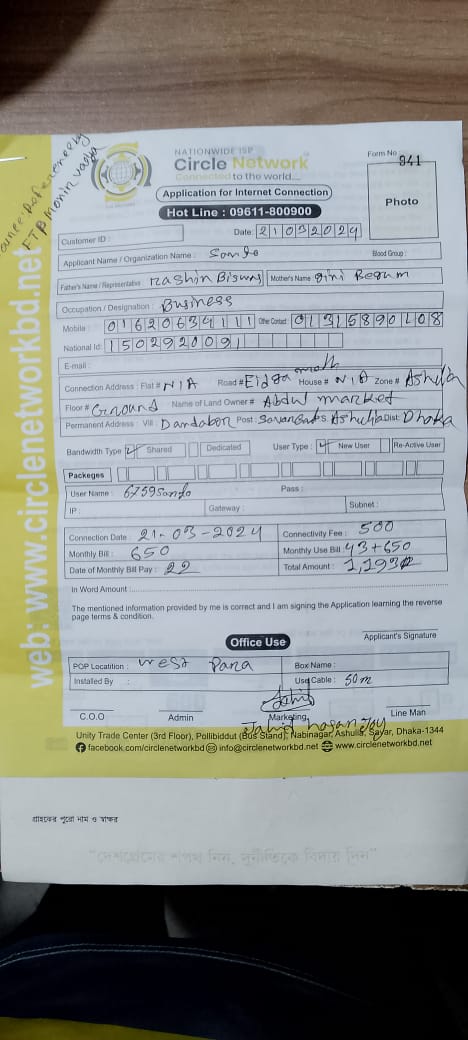 NATIONWIDE ISP
Circle Network
Connected to the world....
Form No
941
Application for Internet Connection
Hot Line : 09611-800900
Photo
Date: 21032024
Customer ID :
Applicant Name / Organization Name : Blood Group :
Father's Name / Representative Rashin Biswas Mother's Name Gini Begum
Occupation / Designation : Business
Mobile : 01620634111 Other Contact : 01315890108
National Id: 1502920091
E-mail :
Connection Address : Flat # N/A Road # Eidga moth House # N/A Zone # Ashulia
Floor # Ground Name of Land Owner # Abdul market
Permanent Address : Vill : Dandabor Post : Savar Ashulia Dist: Dhaka
Bandwidth Type Shared Dedicated User Type : New User Re-Active User
Packeges
User Name : Pass :
IP : Gateway : Subnet :
Connection Date : 21-03-2024 Connectivity Fee : 500
Monthly Bill : 650 Monthly Use Bill : 43+650
Date of Monthly Bill Pay : 22 Total Amount :
In Word Amount :
The mentioned information provided by me is correct and I am signing the Application learning the reverse
page terms & condition.
Applicant's Signature
Office Use
POP Locatition : West Para Box Name :
Installed By : Use Cable : 50m
C.O.O Admin Marketing Line Man
Unity Trade Center (3rd Floor), Pollibiddut (Bus Stand), Nabinagar, Ashulia, Savar, Dhaka-1344
facebook.com/circlenetworkbd info@circlenetworkbd.net www.circlenetworkbd.net
web: www.circlenetworkbd.net
গ্রাহকের পুরো নাম ও স্বাক্ষর
"দেশপ্রেমের শপথ নিন, দুর্নীতিকে বিদায় দিন"